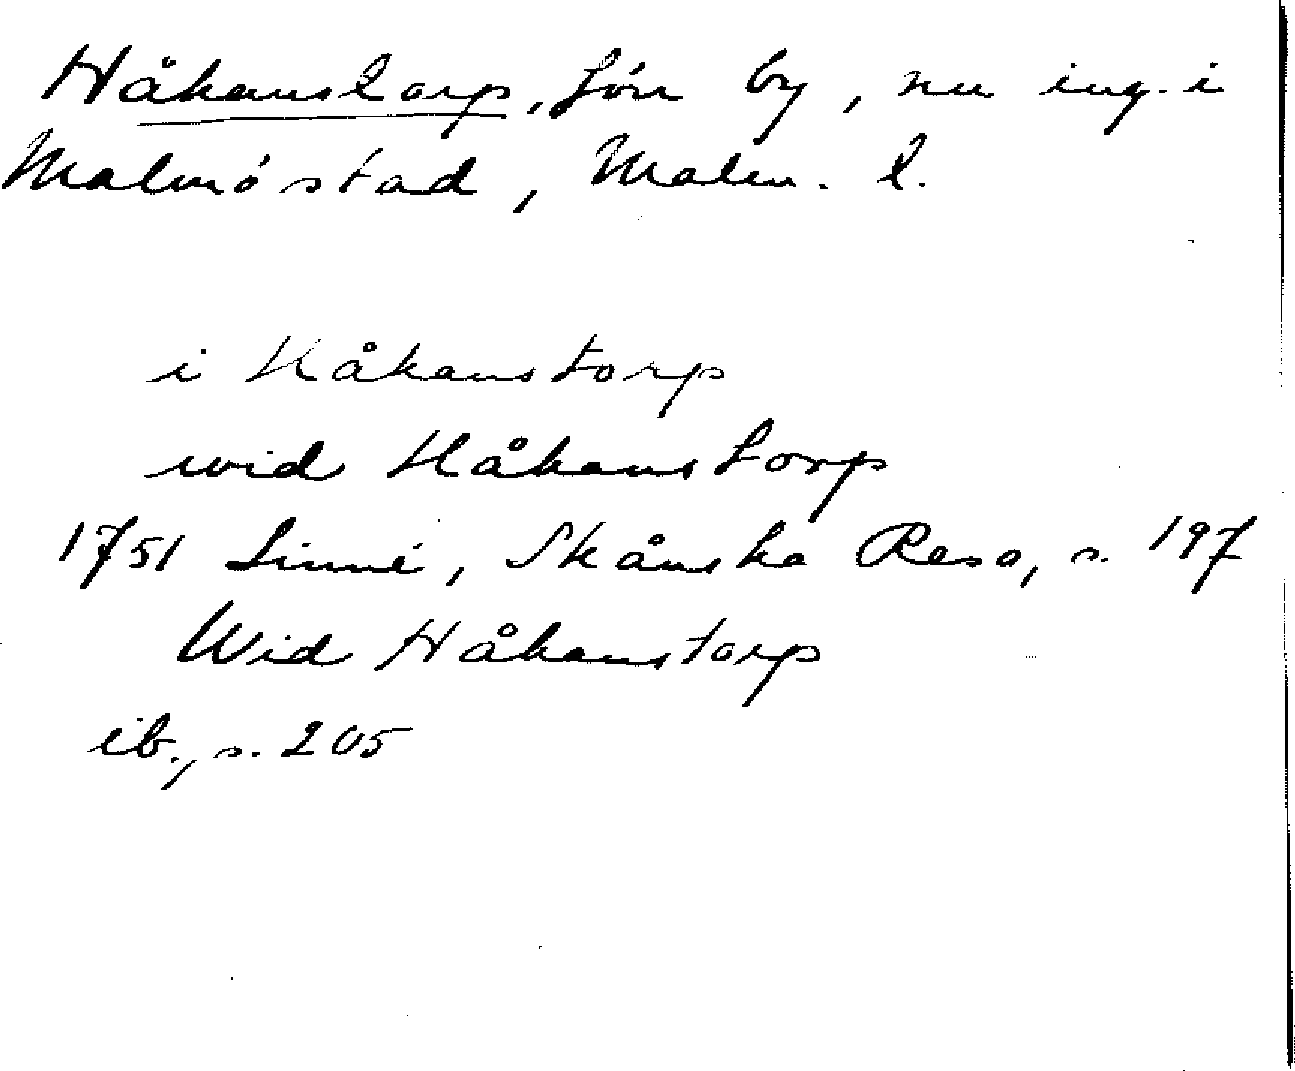 Håkanstorp, förr by, nu ing. i
Malmö stad, Malm. l.
i Håkanstorp
wid Håkanstorp
1751 Linné, Skånska Resa, s. 197
Wid Håkanstorp
ib., s. 205